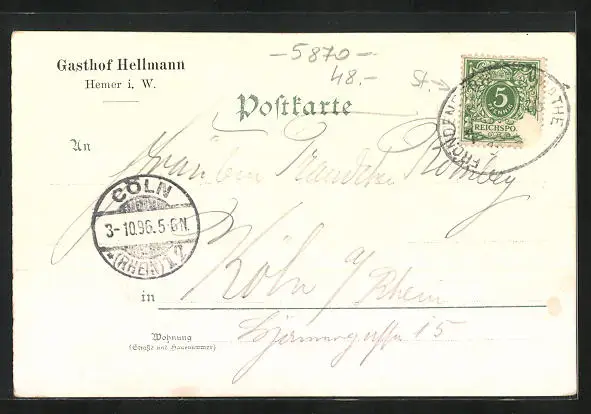 Gasthof Hellmann
Hemer i. W.
-5870-
48.-
St.
5
PFENNIG
REICHSPO
FRÖNDENB
Postkarte
An
Fräulein
CÖLN
3-10.96.5-6N.
*(RHEIN)12
in Köln a/Rhein
15
Wohnung
(Straße und Hausnummer)